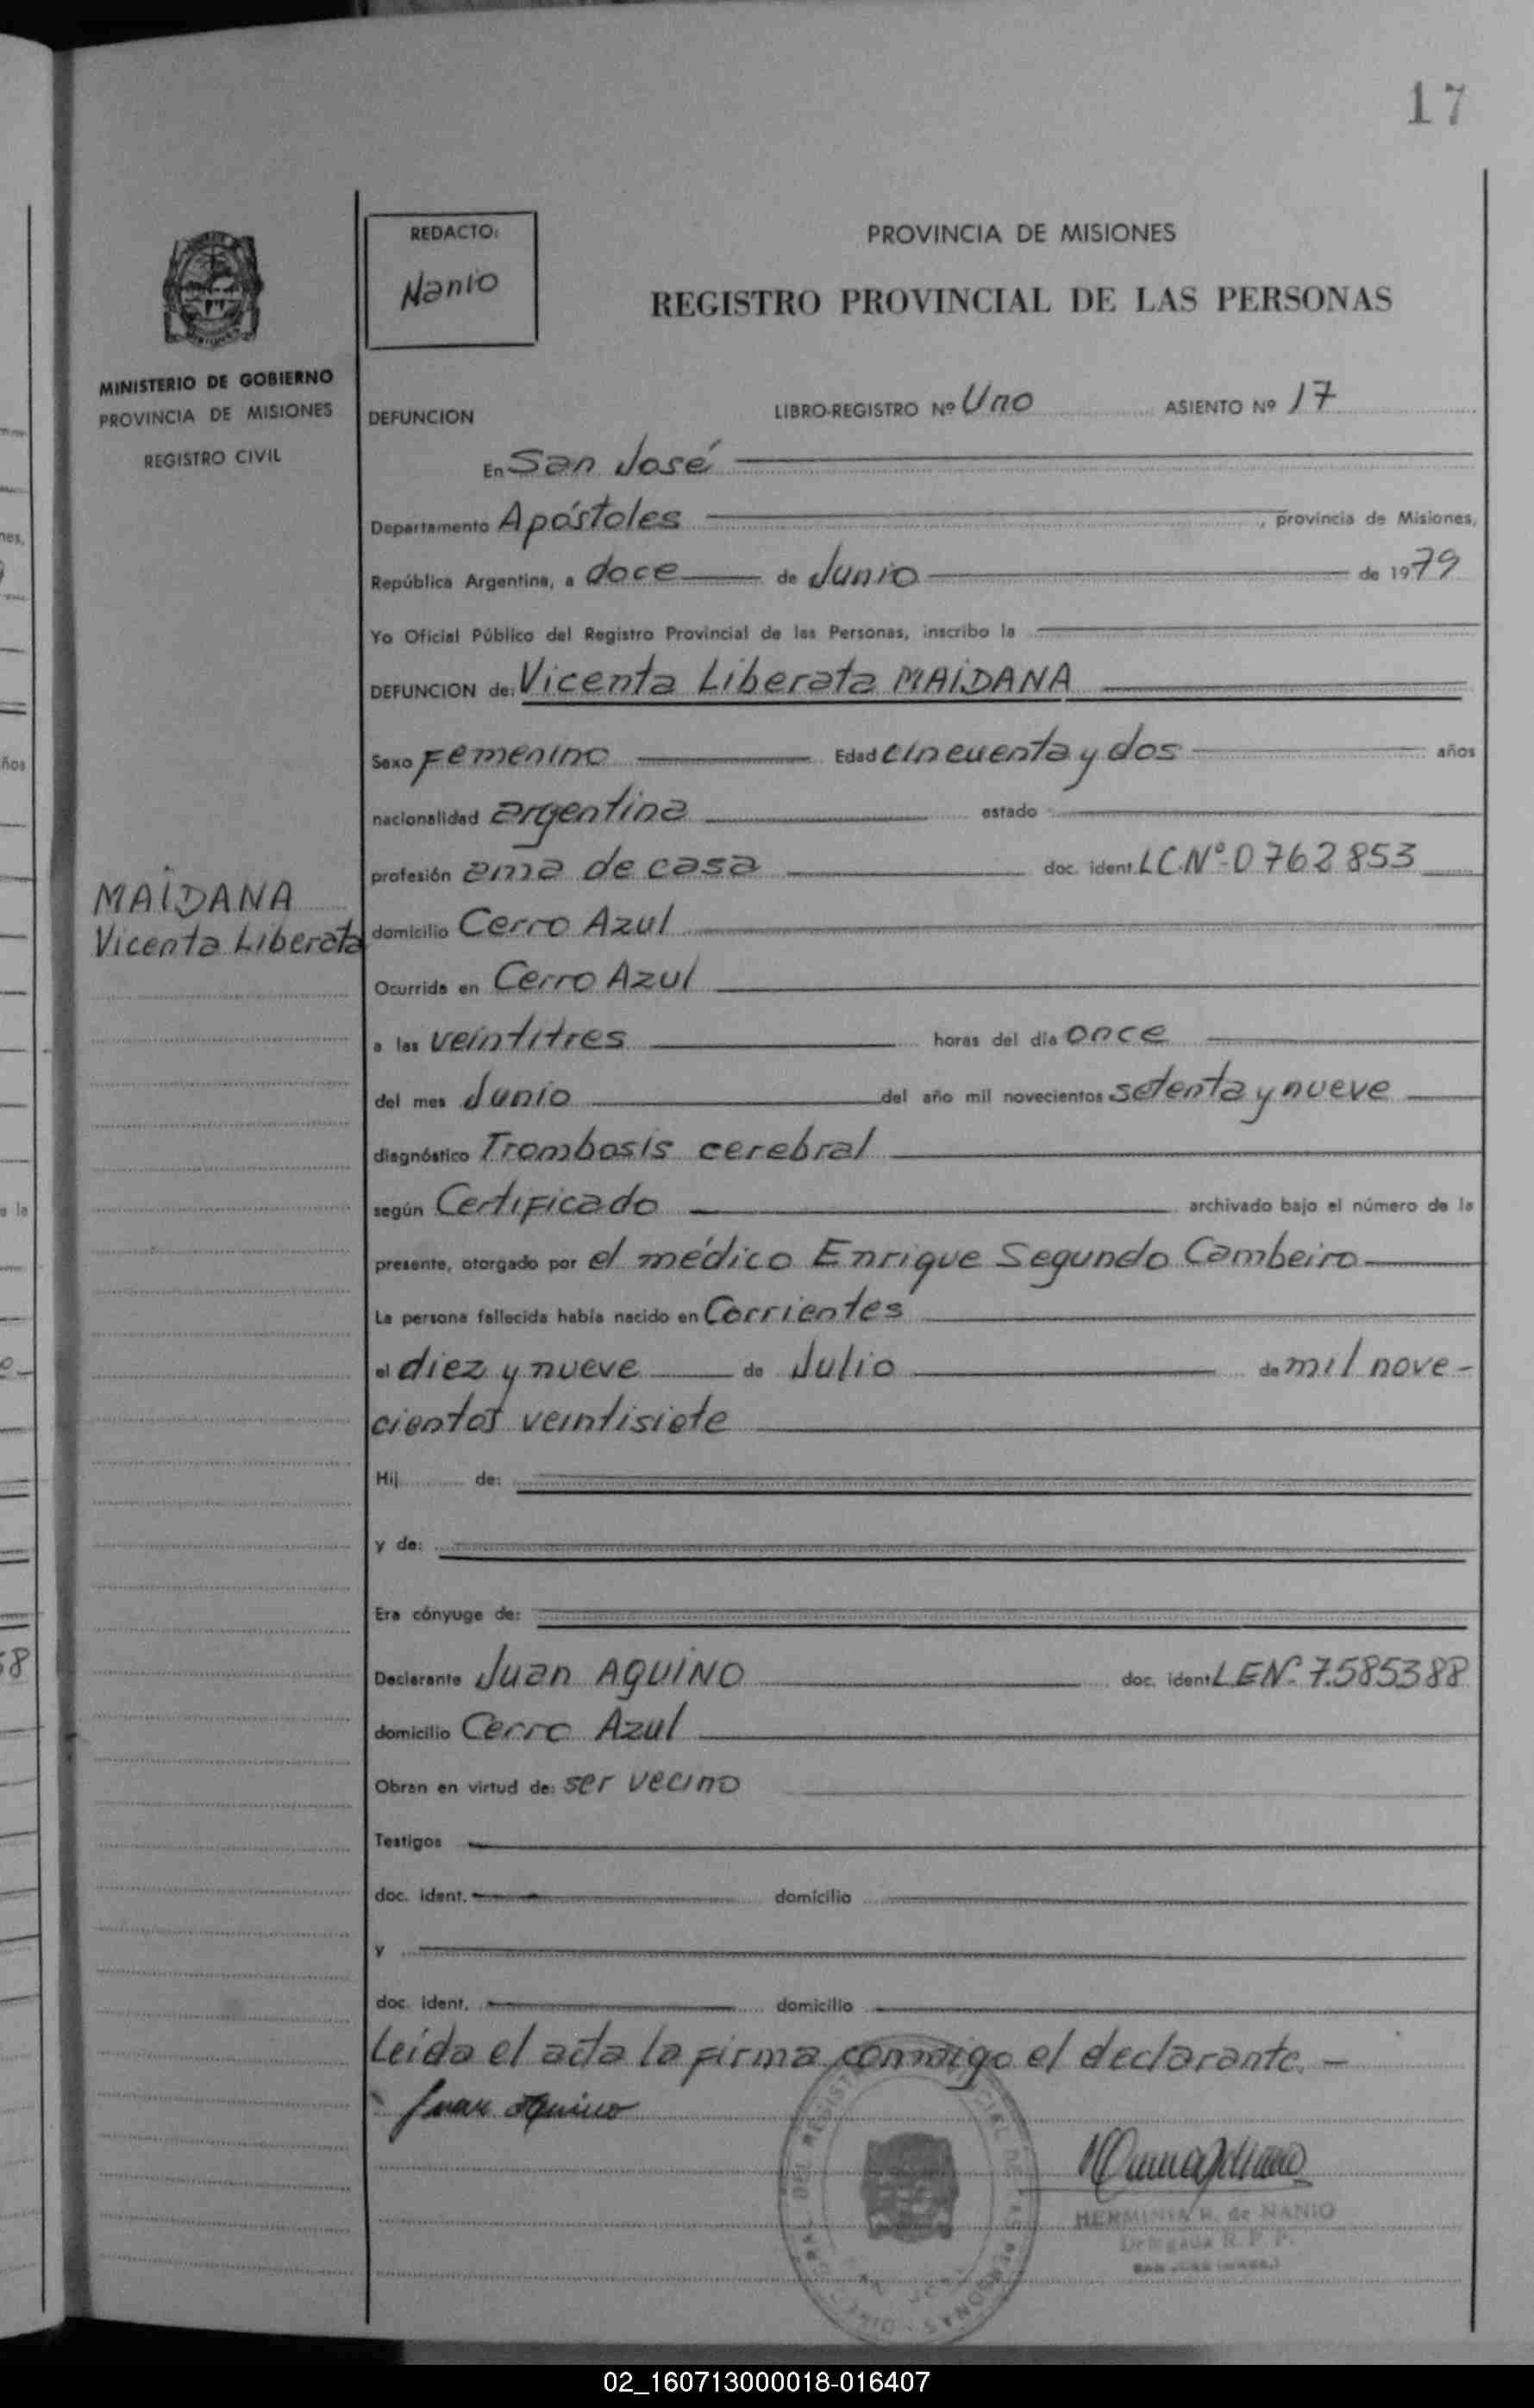 17
REDACTO:
Nanio
PROVINCIA DE MISIONES
REGISTRO PROVINCIAL DE LAS PERSONAS
MINISTERIO DE GOBIERNO
PROVINCIA DE MISIONES
REGISTRO CIVIL
DEFUNCION LIBRO-REGISTRO Nº Uno ASIENTO Nº 17
En San José
Departamento Apóstoles, provincia de Misiones,
República Argentina, a doce de Junio de 1979
Yo Oficial Público del Registro Provincial de las Personas, inscribo la
DEFUNCION de: Vicenta Liberata MAIDANA
Sexo Femenino Edad cincuenta y dos años
nacionalidad argentina estado
profesión ama de casa doc. ident LC.Nº 0762853
MAIDANA
Vicenta Liberata
domicilio Cerro Azul
Ocurrida en Cerro Azul
a las veintitres horas del día once
del mes Junio del año mil novecientos setenta y nueve
diagnóstico Trombosis cerebral
según Certificado archivado bajo el número de la
presente, otorgado por el médico Enrique Segundo Cambeiro
La persona fallecida había nacido en Corrientes
el diez y nueve de Julio de mil nove-
cientos veintisiete
Hij de:
y de:
Era cónyuge de:
Declarante Juan AQUINO doc. ident LE Nº 7.585388
domicilio Cerro Azul
Obran en virtud de: ser vecino
Testigos
doc. ident. domicilio
y
doc. ident. domicilio
Leida el acta la firma conmigo el declarante. -
Juan Aquino
HERMINIA R. de NANIO
Delegada R. P. P.
02_160713000018-016407